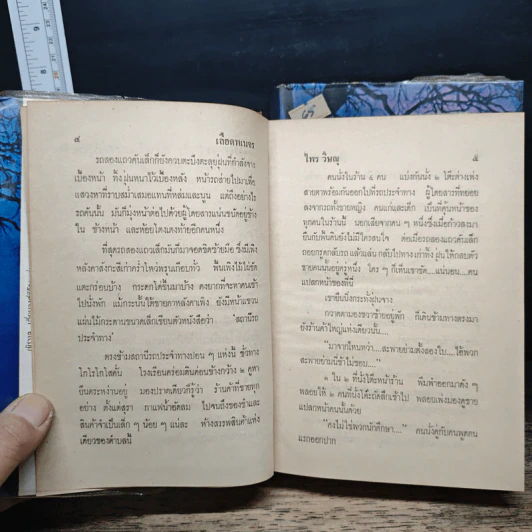 ๔ เลือดทแนง
รถสองแถวคันเล็กก็ยังควบตะบึงตะลุยฝุ่นที่กำลังจาง
เบื้องหน้า ทิ้งฝุ่นหนาไว้เบื้องหลัง หน้ารถส่ายไปมาเพื่อ
แสวงหาที่ราบสม่ำเสมอแทนที่หล่มและนูน แต่ถึงอย่างไร
รถคันนั้น มันก็มุ่งหน้าต่อไปด้วยผู้โดยสารแน่นชนิดอยู่ข้าง
ใน ข้างหน้า และห้อยโตงเตงท้ายอีกคนหนึ่ง
ที่สุดรถสองแถวเล็กมันก็มาจอดชิดซ้ายมือ ซึ่งมีเพิง
หลังคาสังกะสีเก่าคร่ำไหวพรุนเกือบทั่ว พื้นเพิงไม้ไม่ขัด
แตะกร่อนบ้าง กระดกโด่ขึ้นมาบ้าง คงยากที่จะหาคนเข้า
ไปนั่งพัก แม้กระนั้นใต้ชายคาหลังคาเพิง ยังมีหน้าแขวน
แผ่นไม้กระดานขนาดเล็กเขียนตัวหนังสือว่า 'สถานีรถ
ประจำทาง'
ตรงข้ามสถานีรถประจำทางปอน ๆ แห่งนี้ ชั่วทาง
ไกวไกวโตดัน โรงเรือนค่อมดินค่อนข้างกว้าง ๒ คูหา
ยืนตระหง่านอยู่ มองปราดเดียวก็รู้ว่า ร้านค้าที่ขายทุก
อย่าง ตั้งแต่สุรา กาแฟน้ำอัดลม ไปจนถึงของชำและ
สินค้าจำเป็นเล็ก ๆ น้อย ๆ แน่ละ ห้างสรรพสินค้าแห่ง
เดียวของตำบลนี้
ไพร วิษณุ ๕
คนนั่งในร้าน ๔ คน แบ่งกันนั่ง ๒ โต๊ะต่างเพ่ง
สายตาพร้อมกันออกไปที่รถประจำทาง ผู้โดยสารที่ทยอย
ลงจากรถทั้งชายหญิง คนแก่และเด็ก เป็นที่คุ้นหน้าของ
ทุกคนในร้านนี้ นอกเสียจากคน ๆ หนึ่งซึ่งเมื่อก้าวลงมา
ยืนกับพื้นคันยังไม่มีใครสนใจ ต่อเมื่อรถสองแถวคันเล็ก
ถอยกรูดกลับรถ แล้วแล่น กลับไปทางเก่าทิ้ง ฝุ่นให้กลบตัว
ชายคนนั้นอยู่ครู่หนึ่ง ใคร ๆ ก็เห็นเขาชัด....แน่นอน....คน
แปลกหน้าของที่นี่
เขายืนนิ่งกระทั่งฝุ่นจาง
กวาดตามองขวาซ้ายอยู่พัก ก็เดินข้ามทางตรงมา
ยังร้านค้าใหญ่แห่งเดียวนั้น....
"มาจากไหนหว่า....สะพายย่ามตั้งสองใบ....ไอ้พวก
สะพายย่ามนี่ข้าไม่ชอบ...."
๑ ใน ๒ ที่นั่งโต๊ะหน้าร้าน พึมพำออกมาดัง ๆ
พลอยให้ ๒ คนที่นั่งโต๊ะถัดลึกเข้าไป พลอยเพ่งมองดูชาย
แปลกหน้าคนนั้นด้วย
"คงไม่ใช่พวกนักศึกษา...." คนนั่งคู่กับคนพูดคน
แรกออกปาก